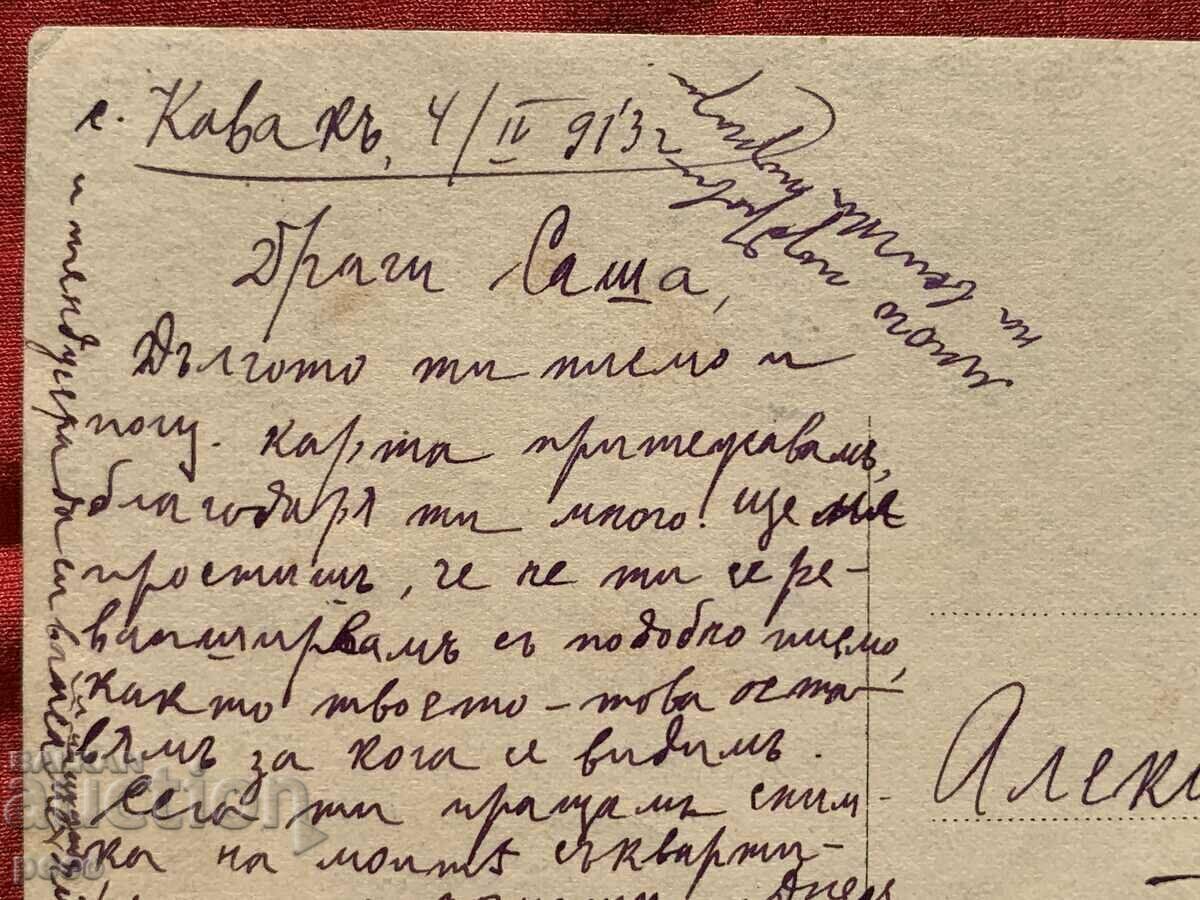 с. Кавакъ, 4/II 913 г
Драги Саша,
Дългото ти писмо и
пощ. карта притежавамъ,
благодаря ти много! Ще ме
простишъ, че не ти се ре-
ванширвамъ съ подобно писмо,
както твоето – това оста-
вямъ за кога се видимъ.
Сега ти пращамъ сним-
ка на моитѣ съкварти-
Днесъ
много поздрави
на всички
и
Алек
БАЛКАН
auction